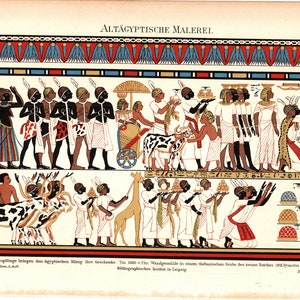 ALTÄGYPTISCHE MALEREI.
bringen den ägyptischen König ihre Geschenke. Um 1380 v. Chr. Wandgemälde in einem thebanischen Grabe des neuen Reiches
Bibliographisches Institut in Leipzig.